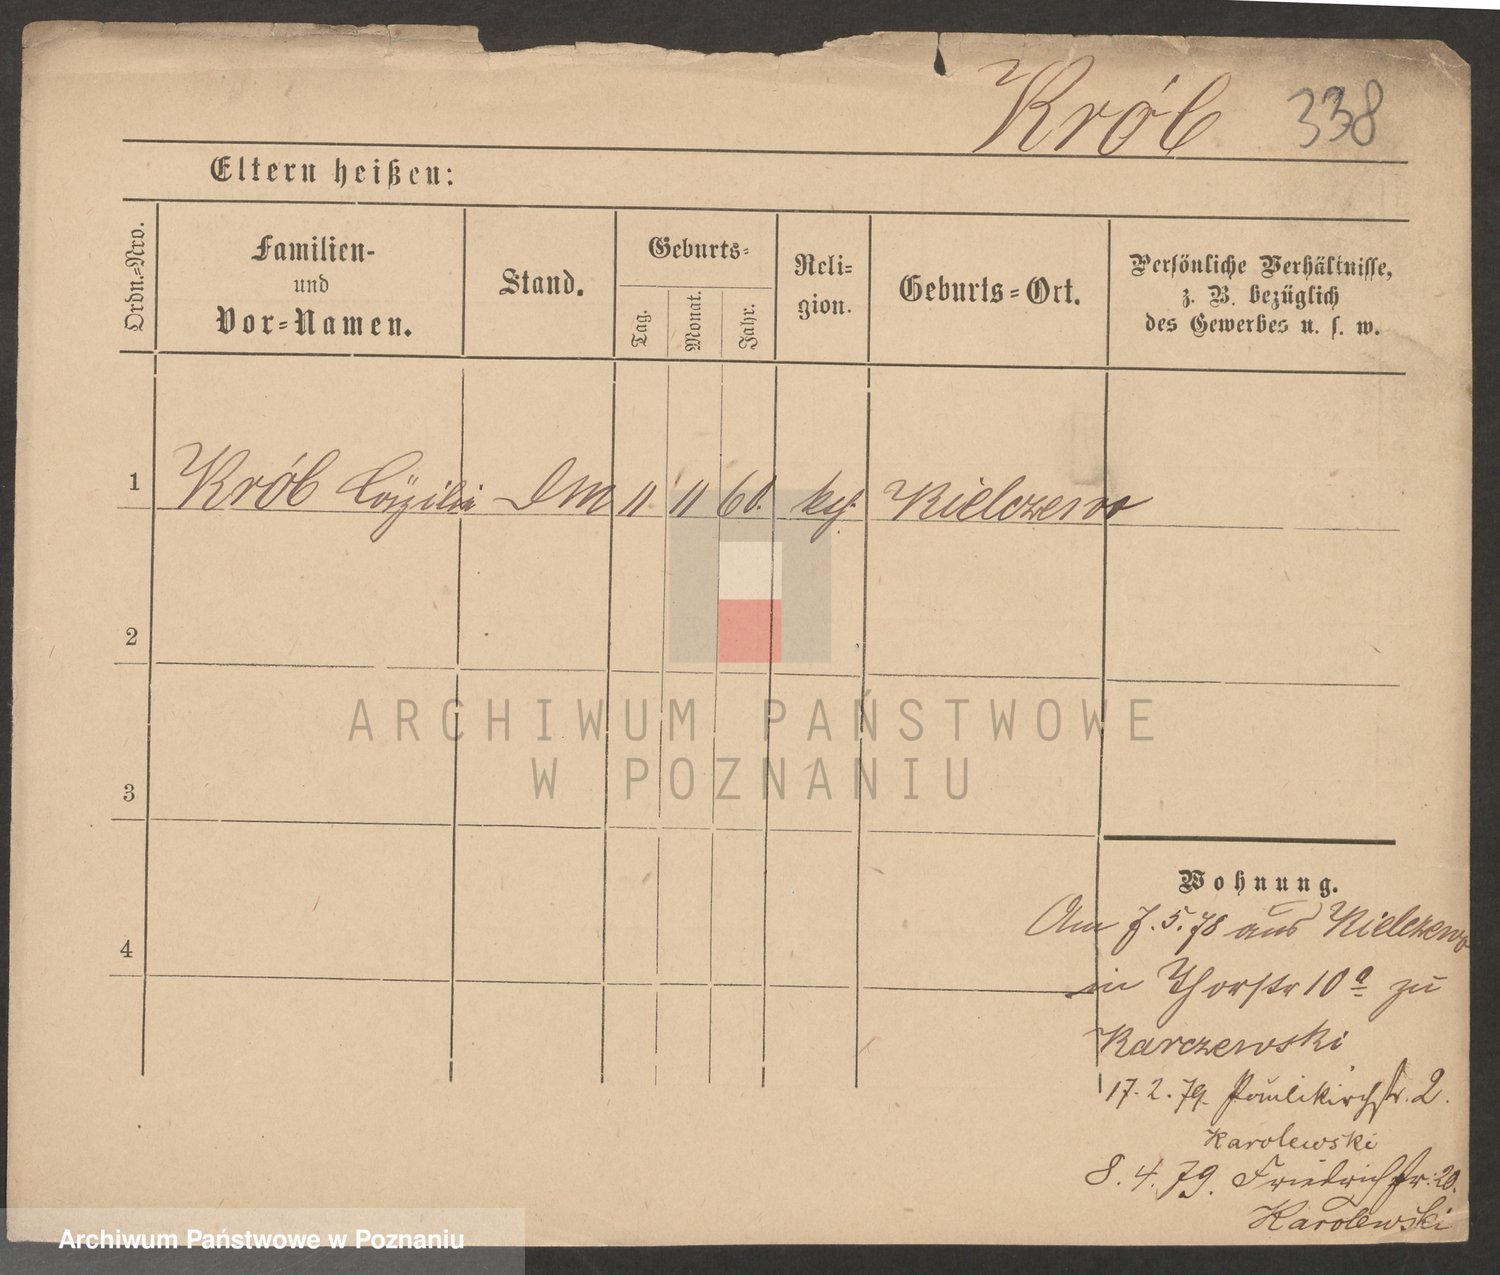 Krób 338
Eltern heißen:
Ordn.=Nro.
Familien-
und
Vor=Namen.
Stand.
Geburts=
Tag.
Monat.
Jahr.
Reli=
gion.
Geburts=Ort.
Persönliche Verhältnisse,
z. B. bezüglich
des Gewerbes u. s. w.
1 Krób DM 11 11 60. Kielczewo
2
ARCHIWUM PAŃSTWOWE
W POZNANIU
3
Wohnung.
Am 7.5.78 aus Kielczewo
4
in Thorstr 10 a zu
Karczewski
17.2.79. Paulikirchstr. 2.
Karolewski
8.4.79. Friedrichstr. 20.
Karolewski
Archiwum Państwowe w Poznaniu